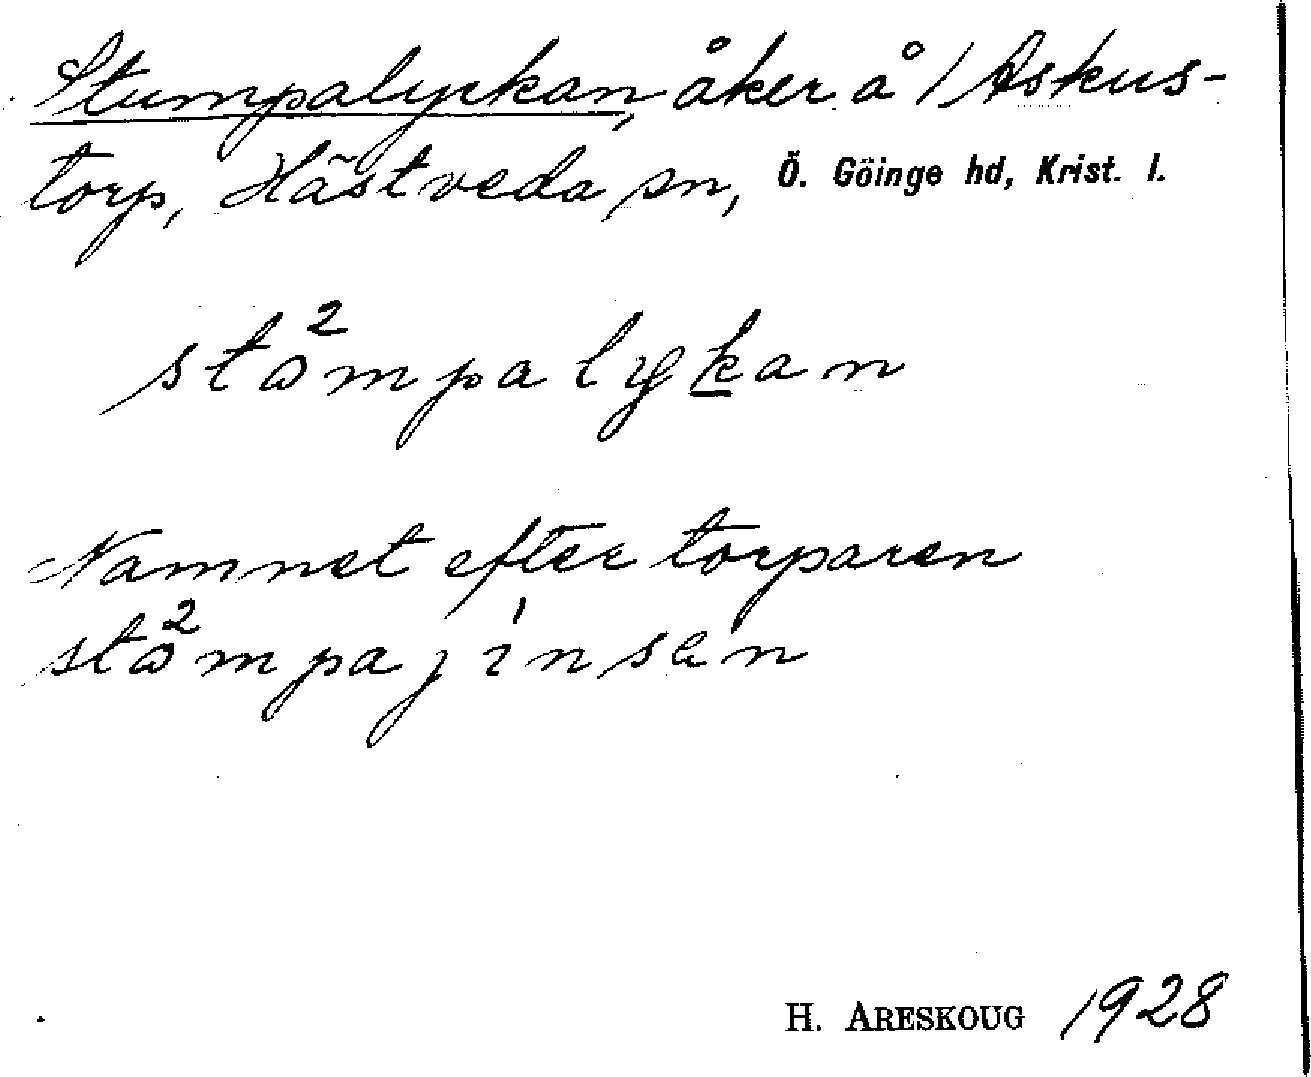 Stumpalyckan, åker å 1 Askus-
torp, Hästveda sn, Ö. Göinge hd, Krist. l.
stω²mpalykan
Namnet efter torparen
stω²mpajinsen
H. ARESKOUG 1928